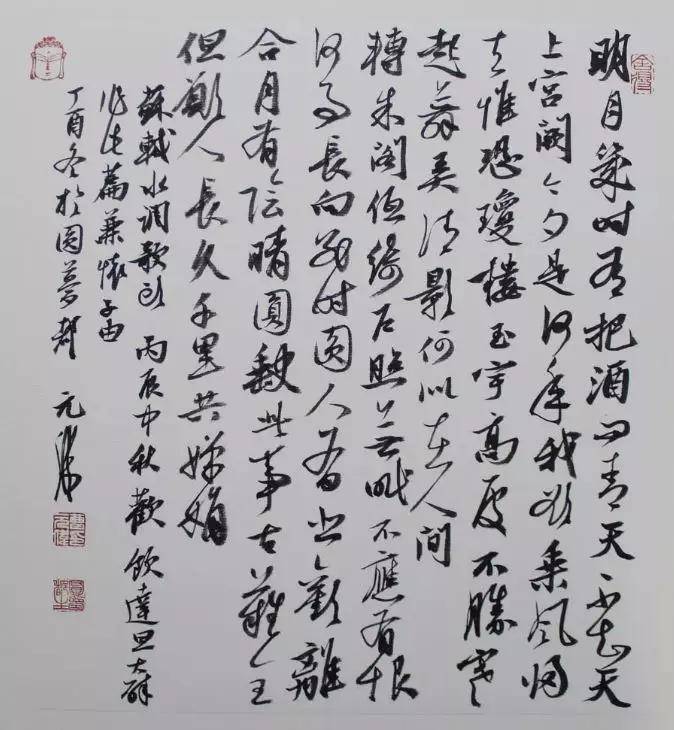 明月幾时有把酒问青天不知天
上宫阙今夕是何年我欲乘风归
去惟恐瓊樓玉宇高處不勝寒
起舞弄清影何似在人间
轉朱阁低绮户照無眠不應有恨
何事長向别时圓人有悲歡離
合月有陰晴圓缺此事古難全
但願人長久千里共嬋娟
蘇軾水调歌头 丙辰中秋歡飲達旦大醉
作此篇兼懷子由
丁酉冬於圓夢 元